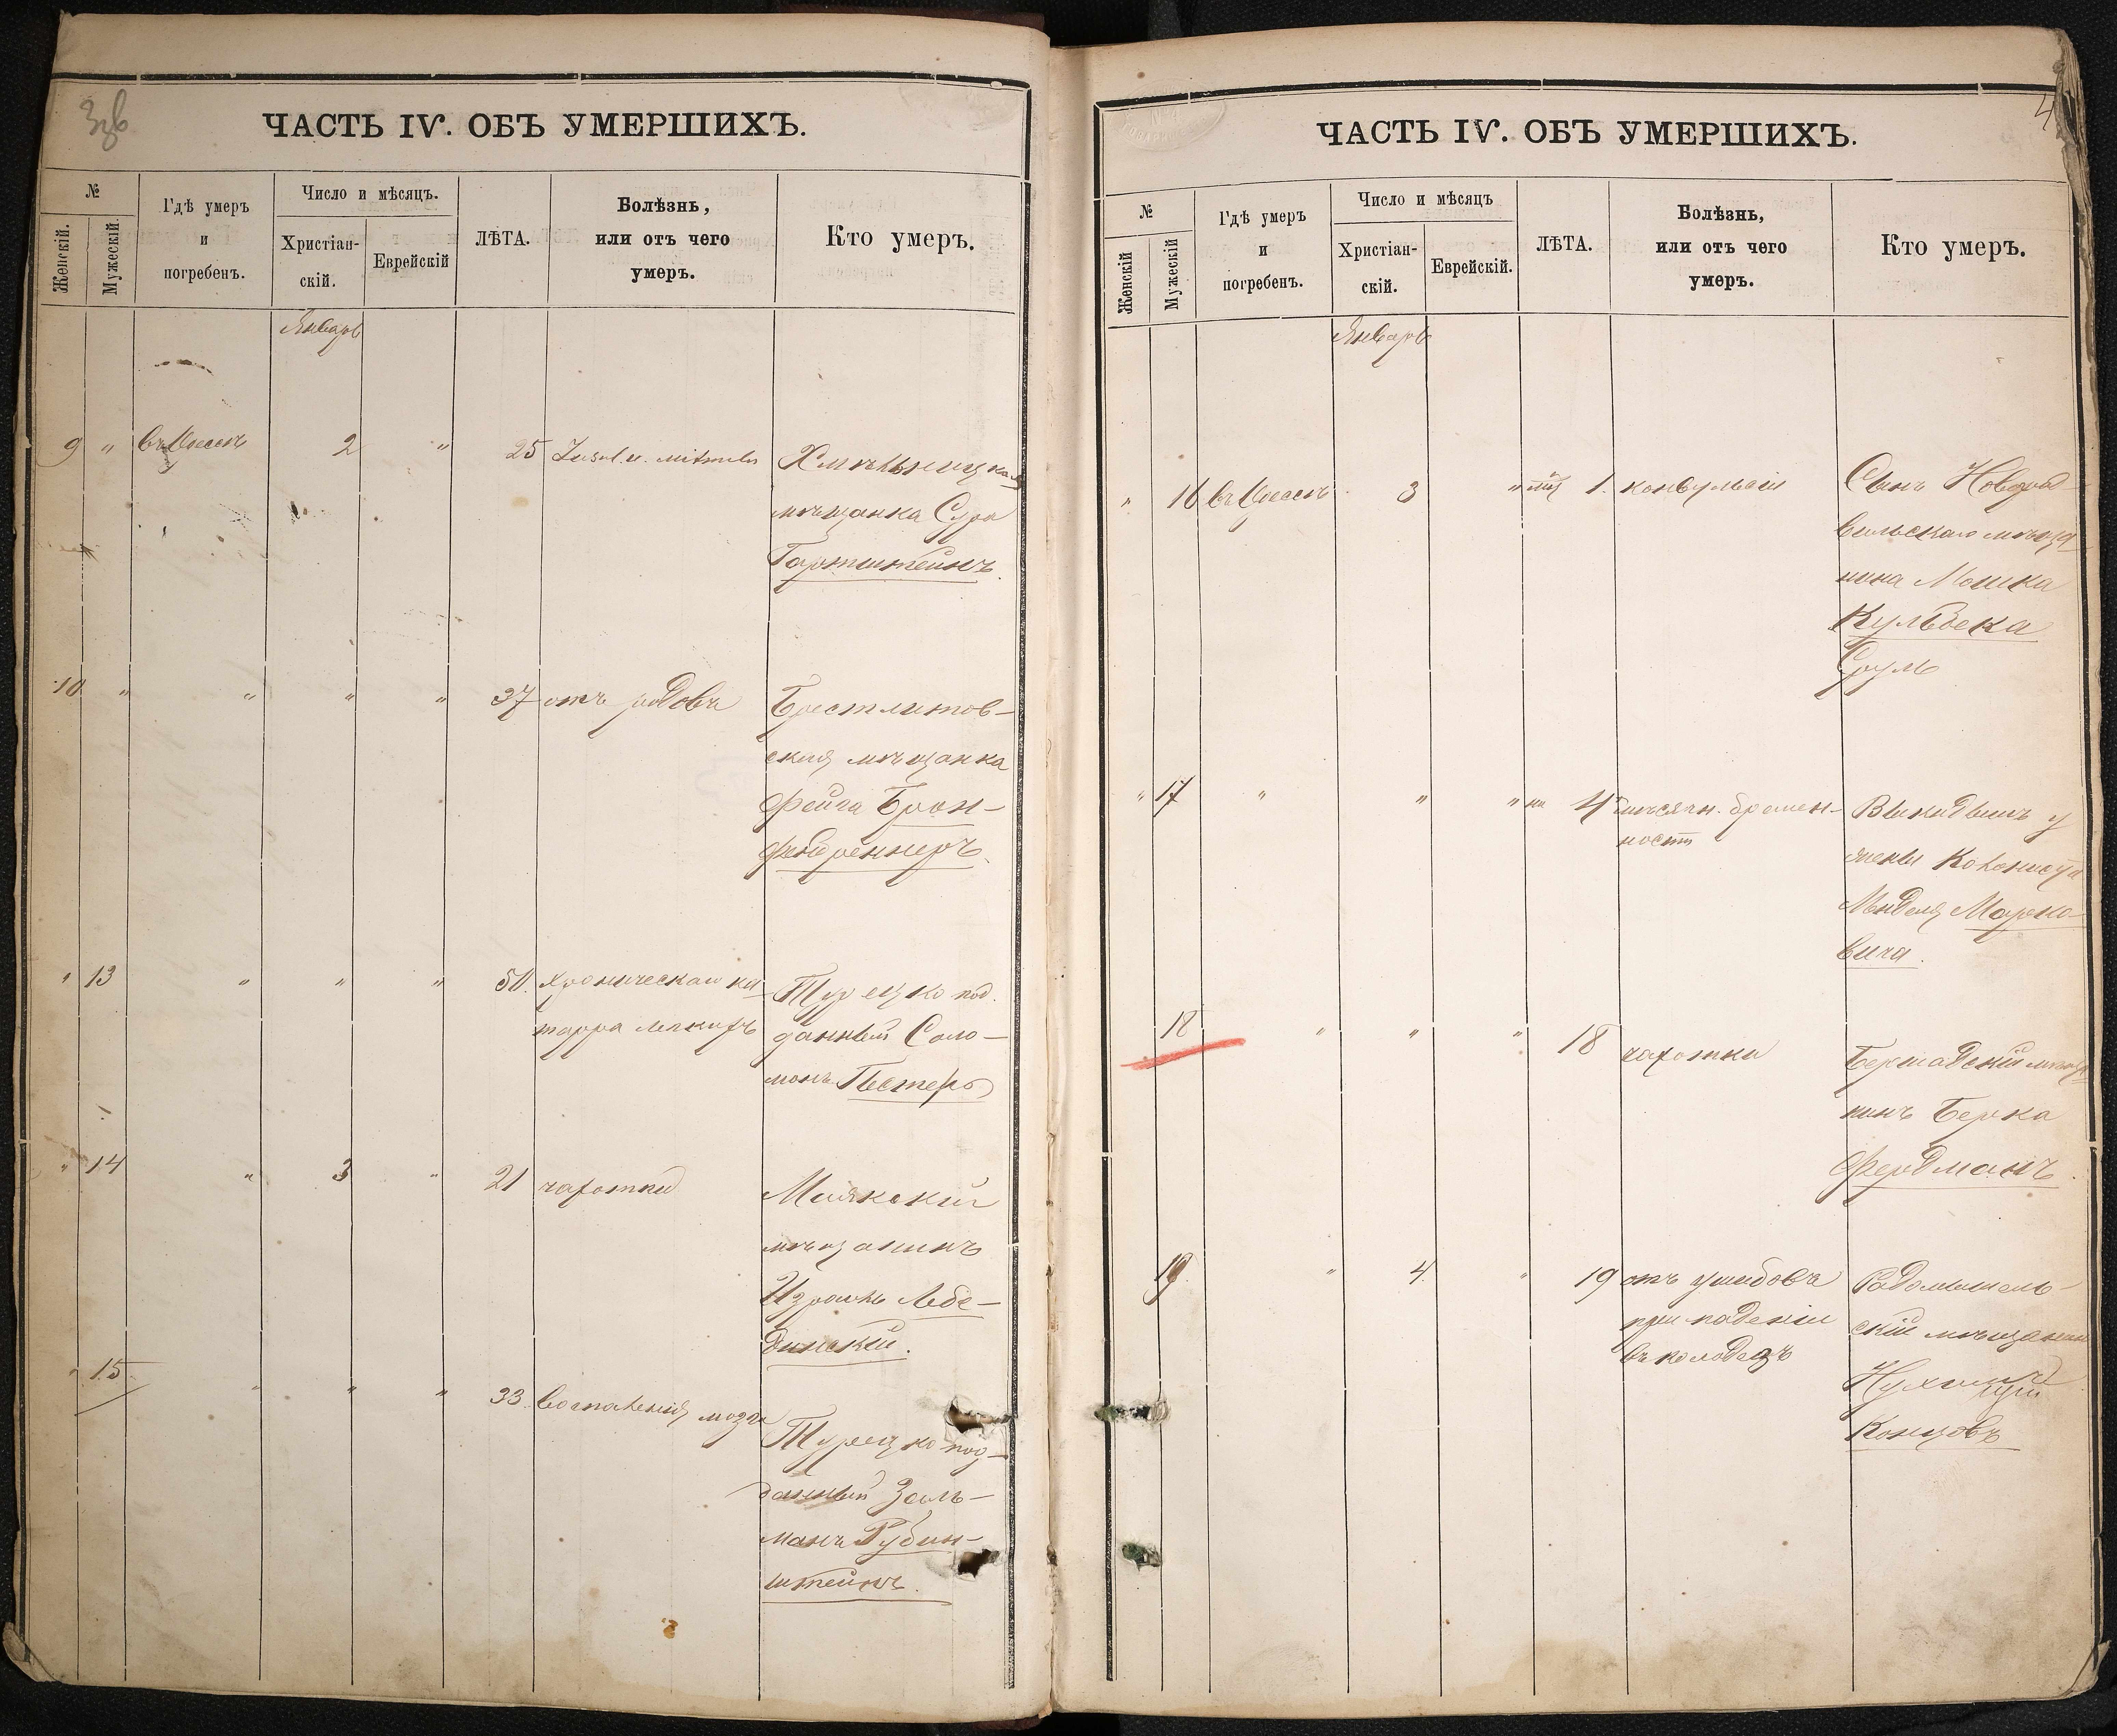 Ззв
ЧАСТЬ IV. ОБЪ УМЕРШИХЪ.
№
Женскій.
Мужескій
Гдѣ умеръ
и
погребенъ.
Число и мѣсяцъ.
Христіан-
скій.
Еврейскій
ЛѢТА.
Болѣзнь,
или отъ чего
умеръ.
Кто умеръ.
Январь
9 " въ Одессѣ 2 " 25 Insuf. v. mitralis Хмѣльницкая
мѣщанка Сура
Гартштейнъ.
10 " " " " 37 отъ родовъ Брестлитов-
ская мѣщанка
Фейга Брон-
фенбреннеръ.
" 13 " " " 50. хроническаго ка-
тарра легкихъ
Турецко под.
данный Соло-
монъ Пестеръ
" 14 " 3 " 21 чахотки Маякскій
мѣщанинъ
Израиль Лебе-
динскій.
" 15 " " " 33. воспаленія мозга
Турецко под-
данный Заль-
манъ Рубин-
штейнъ.
4
ЧАСТЬ IV. ОБЪ УМЕРШИХЪ.
№
Женскій
Мужескій
Гдѣ умеръ
и
погребенъ.
Число и мѣсяцъ
Христіан-
скій.
Еврейскій.
ЛѢТА.
Болѣзнь,
или отъ чего
умеръ.
Кто умеръ.
Январь
" 16 въ Одессѣ 3 " 1. конвульсіи Сынъ
мѣща-
нина Мошка
Кульбека
Сруль
" 17 " " " 4 мѣсячн. беремен-
ност
Выкидышъ у
жены Колониста
Менделя Марко-
вича.
18 " " " 18 чахотки Бершадскій мѣща-
нинъ Берка
Фердманъ.
19. " 4. " 19 отъ ушибовъ
при паденіи
въ колодезъ
Радомысль-
скій мѣщанинъ
Концовъ